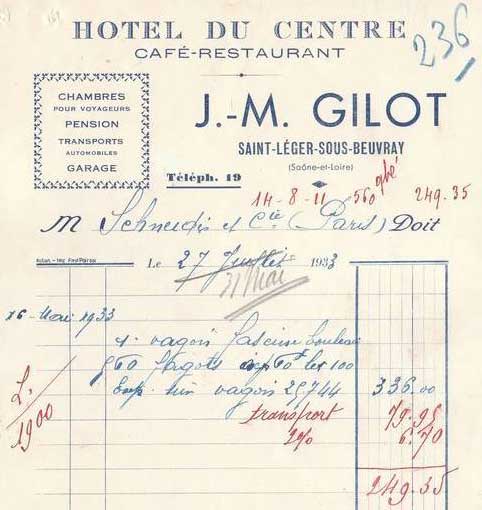 HOTEL DU CENTRE
CAFÉ-RESTAURANT
236
CHAMBRES
POUR VOYAGEURS
PENSION
TRANSPORTS
AUTOMOBILES
GARAGE
J.-M. GILOT
SAINT-LÉGER-SOUS-BEUVRAY
(Saône-et-Loire)
Téléph. 19
14-8-11 560 249.35
M Schneider et Cie (Paris) Doit
Le 27 Juillet 1933
31 Mai
16 Mai 1933
1 vagon
560 fagots les 100
Exp. un vagon 25744 336.00
transport 79.95
2% 6.70
L.
1900
249.35